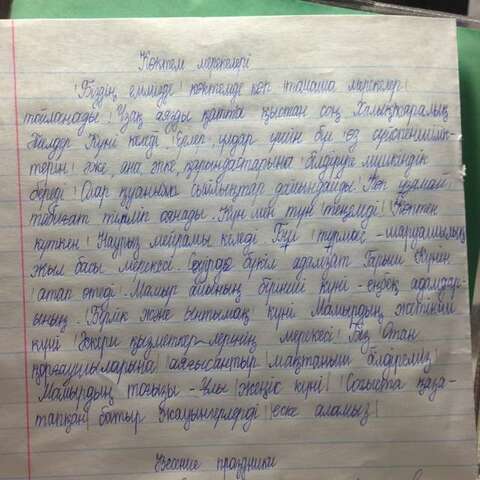 Көктем мерекелері
Біздің елімізде көктемде көп тамаша мерекелер
тойланады. Ұзақ аязды қатты қыстан соң Халықаралық
Әйелдер Күні келді. Ерлер, ұлдар үшін бұл өз сүйіспеншілік-
терін әже, ана, әпке, қарындастарына білдіруге мүмкіндік
береді. Олар қуанып сыйлықтар дайындайды. Көп ұзамай
табиғат түрленіп оянады. Күн мен түн теңеледі. Көптен
күткен Наурыз мейрамы келеді. Бұл тұрмыс-шаруашылық
жыл басы мерекесі. Сәуірде бүкіл адамзат Ғарыш Күнін
атап өтеді. Мамыр айының бірінші күні - еңбек адамдар-
ының. Бірлік және ынтымақ күні. Мамырдың жетінші
күні Әскери қызметкер-лерінің мерекесі. Біз Отан
қорғаушыларына мақтаныш білдіреміз
Мамырдың тоғызы - Ұлы жеңіс күні. Соғыста қаза-
тапқан батыр жауынгерлерді еске аламыз
Весение праздники